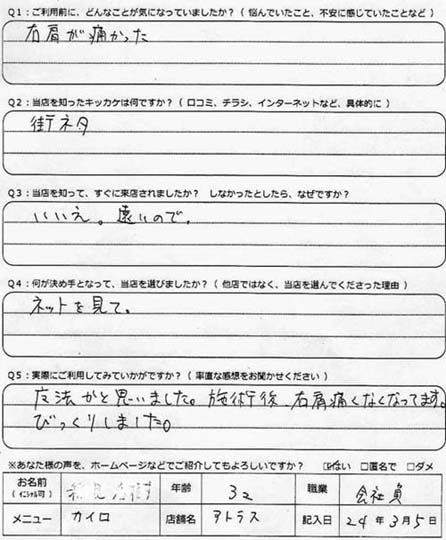 Q1：ご利用前に、どんなことが気になっていましたか？（ 悩んでいたこと、不安に感じていたことなど ）
右肩が痛かった
Q2：当店を知ったキッカケは何ですか？（ 口コミ、チラシ、インターネットなど、具体的に ）
街ネタ
Q3：当店を知って、すぐに来店されましたか？ しなかったとしたら、なぜですか？
いいえ。遠いので。
Q4：何が決め手となって、当店を選びましたか？（ 他店ではなく、当店を選んでくださった理由 ）
ネットを見て。
Q5：実際にご利用してみていかがですか？（ 率直な感想をお聞かせください ）
魔法かと思いました。施術後、右肩痛くなくなってます。
びっくりしました。
※あなた様の声を、ホームページなどでご紹介してもよろしいですか？ ☑はい □匿名で □ダメ
お名前 （イニシャル可） 年齢 32 職業 会社員
メニュー カイロ 店舗名 アトラス 記入日 24年3月5日